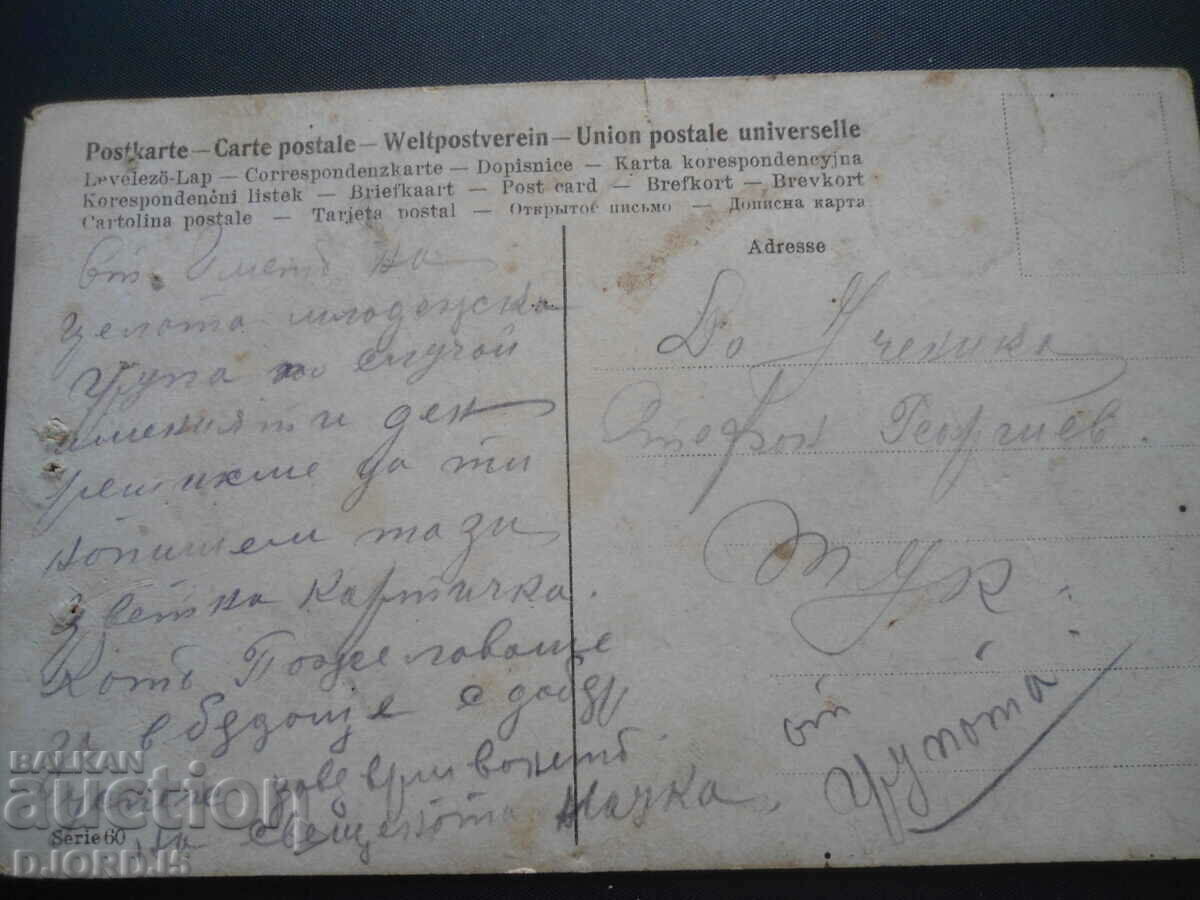 Postkarte — Carte postale — Weltpostverein — Union postale universelle
Levelezö-Lap — Correspondenzkarte — Dopisnice — Karta korespondencyjna
Korespondenčni listek — Briefkaart — Post card — Brefkort — Brevkort
Cartolina postale — Tarjeta postal — Открытое письмо — Дописна карта
Adresse
Вть Иметь на
целата младежка
група по случай
именият ти ден
решихме да ти
напишем тази
цветна картичка.
Кать Пожелаваще
ти в бъдаще с добър
завервшванеть
на свещената Наука.
До Ученика
Стефан Георгиев.
Тук.
от
групата
Série 60
BALKAN
auction
D.JORD.15